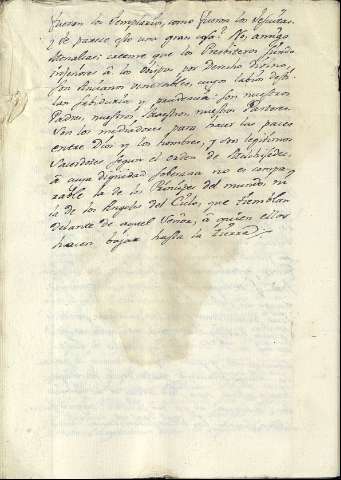 fueron los Templarios, como fueron los Jesuitas.
y te parece esto una gran cosa? No, amigo
creeme que los Presbiteros siendo
inferiores á los Obispos por derecho divino,
son Ancianos venerables, cuyos labios desti-
lan sabiduria y prudencia: son nuestros
Padres, nuestros Maestros, nuestros Pastores.
Son los mediadores para hacer las paces
entre Dios y los hombres, y son legitimos
Sacerdotes segun el orden de Melchisedec,
á cuya dignidad soberana no es compa-
rable la de los Principes del mundo, ni
la de los Angeles del Cielo, que tiemblan
delante de aquel Señor, á quien ellos
hacen bajar hasta la tierra